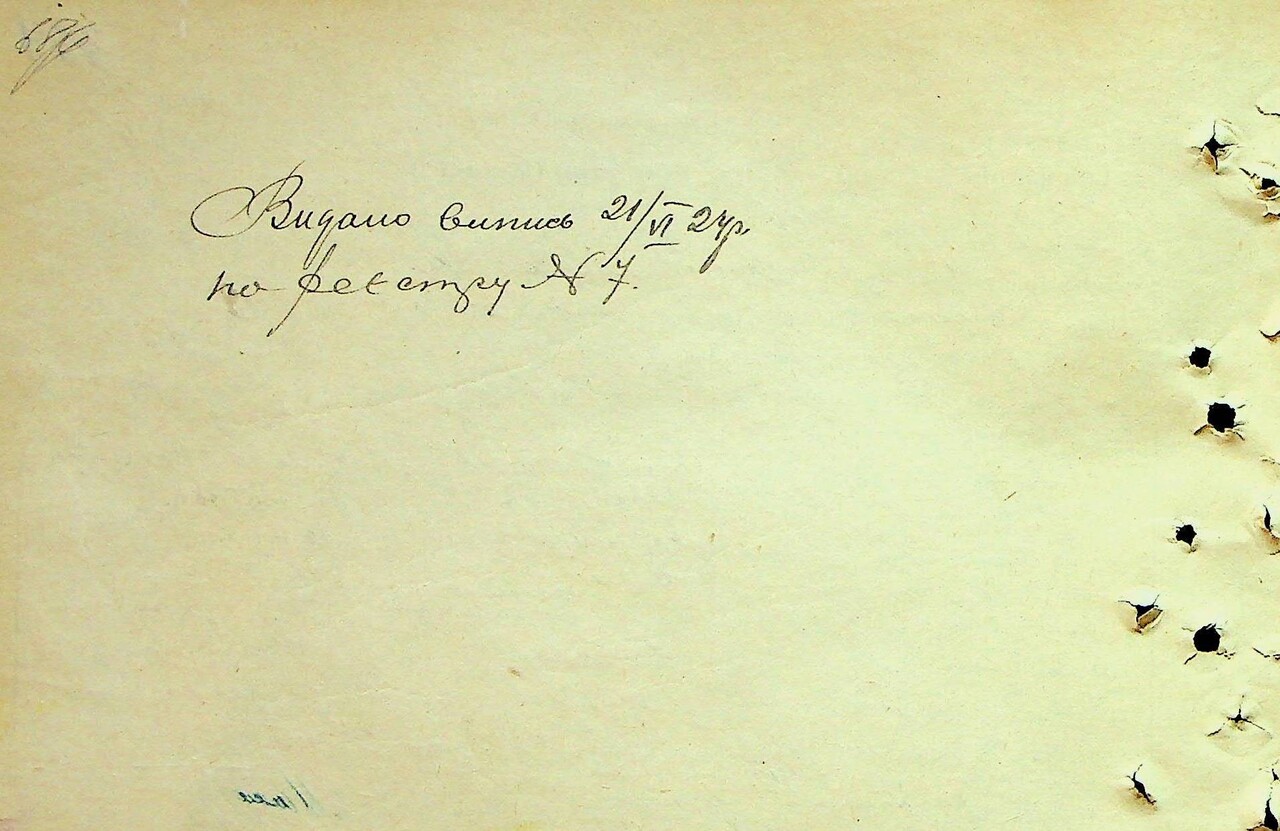 Видано випись 21/VI 24р.
по реєстру N 7.